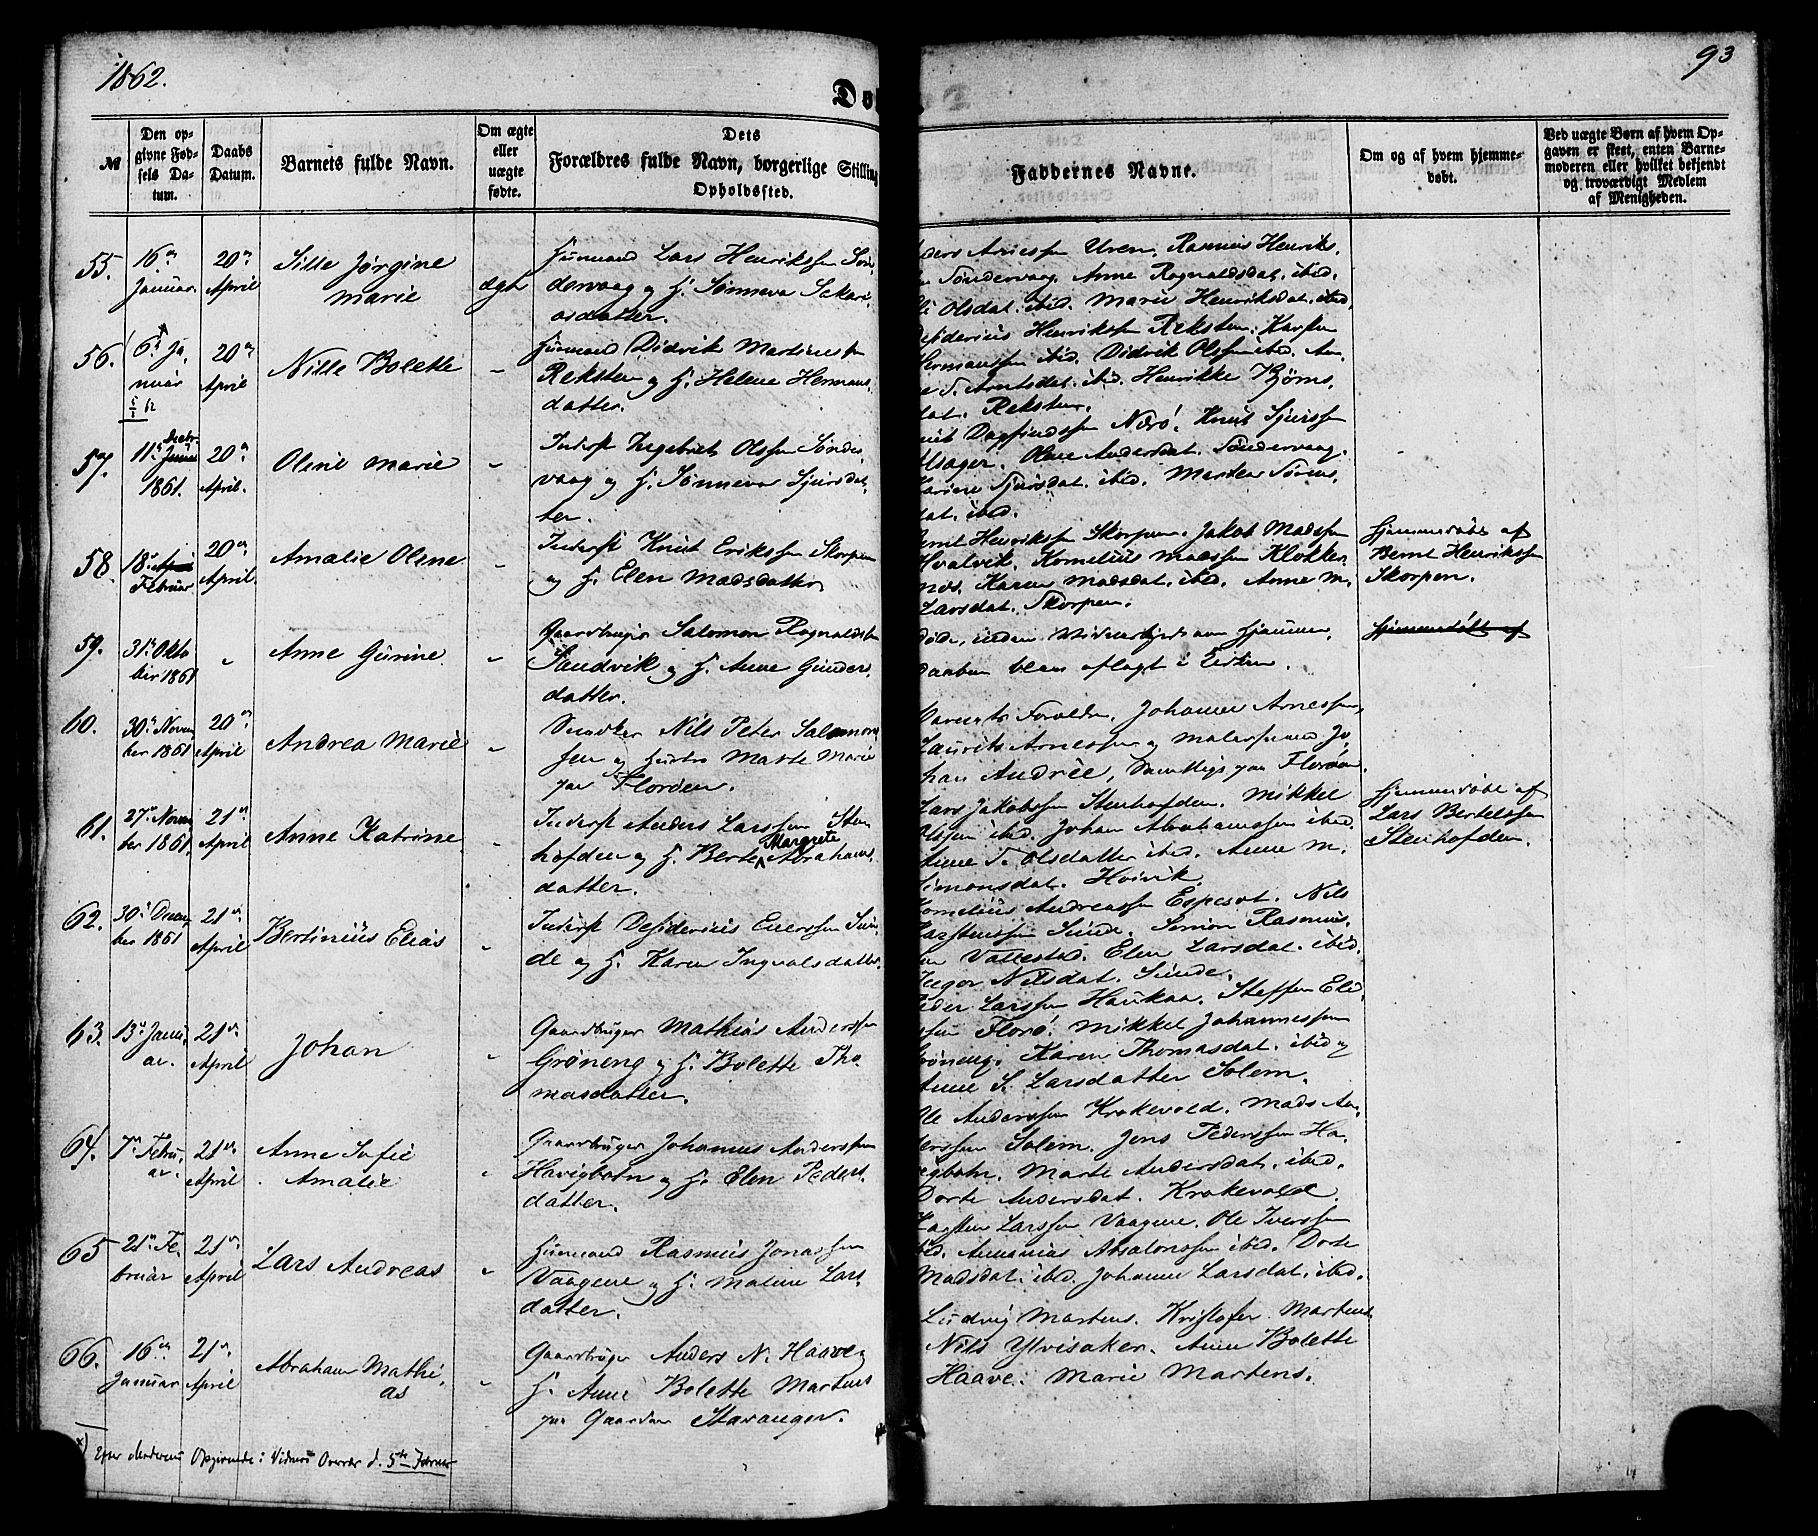 1862.
Do
93
№
Den op-
givne Fød-
sels Da-
tum.
Daabs
Datum.
Barnets fulde Navn.
Om ægte
eller
uægte
fødte.
Dets
Forældres fulde Navn, borgerlige Stilling
Opholdssted.
Faddernes Navne.
Om og af hvem hjemme-
døbt.
Ved uægte Børn af hvem Op-
gaven er skeet, enten Barne-
moderen eller hvilket bekjendt
og troværdigt Medlem
af Menigheden.
55.
16de
Januar.
20de
April
Sille Jørgine
Marie
ægte
Huusmand Lars Henrikssen Søn-
dervaag og H. Sønneva Sakari-
asdatter.
Arnessen Uren. Rasmus Henriks-
Søndervaag. Anne Ragnaldsdat. ibid.
Olsdat. ibid. Marie Henriksdat. ibid.
56.
6te Ja-
nuar
20de
April
Nille Bolette
"
Huusmand Didrik Martinussen
Reksten og H. Helene Hermans-
datter.
Desiderius Henrikssen Reksten. Karsten
Hermanssen ibid. Didrik Olssen ibid. An-
ne S. Arntsdat. ibid. Henrikke Bjørns-
dat. Reksten.
57.
11te Decbr.
1861.
20de
April.
Oline Marie
"
Inderst Ingebrigt Olssen Sønder-
vaag og H. Sønneva Sjursdat-
ter.
Dagfindssen Nærø. Knut Sjurssen
Olsager. Oline Andersdat. Søndervaag.
Sjursdat. ibid. Martha Sørens-
dat. ibid.
58.
18de April
Februar
20de
April.
Amalie Oline
"
Inderst Knut Erikssen Skorpen
og H. Elen Madsdatter
Bernt Henrikssen Skorpen. Jakob Madssen
Hvalvik. Kornelius Madssen Klokker-
nes. Karen Madsdat. ibid. Anne M.
Larsdat. Skorpen.
Hjemmedøbt af
Bernt Henrikssen
Skorpen.
59.
31te Okto-
ber 1861
"
Anne Gurine
"
Gaardbruger Salomon Ragnaldssen
Sandvik og H. Anne Gunders-
datter.
Døde, inden Vidnesbyrd om Hjemme-
daaben blev aflagt i Kirken.
Hjemmedøbt af
60.
30te Novem-
ber 1861
20de
April
Andrea Marie
"
Snedker Nils Peter Salomon-
sen og Hustro Marte Marie
paa Florøen.
Barnets Forældre, Johanne Arnessen,
Laurits Arnessen og Malersvend Jo-
han Andrée, samtlige paa Florøen.
61.
27de Novem-
ber 1861.
21de
April
Anne Katrine
"
Inderst Anders Larssen Sten-
hofden og H. Berte Margrete Abrahams-
datter.
Lars Jakobssen Stenhofden. Mikkel
Olssen ibid. Johan Abrahamssen ibid.
Anne S. Olsdatter ibid. Anne M.
Simonsdat. Hovik.
Hjemmedøbt af
Lars Bertelssen
Stenhofden.
62.
30te Decem-
ber 1861
21de
April
Bertinius Elias
"
Inderst Desiderius Enerssen Sun-
de og H. Karen Ingvalsdatter.
Kornelius Andreassen Espeset. Nils
Karstenssen Sunde. Simon Rasmus-
sen Vallestad. Elen Larsdat. ibid.
Inger Nilsdat. Sunde.
63.
13de Janu-
ar.
21de
April
Johan
"
Gaardbruger Mathias Anderssen
Grøneng og H. Bolette Tho-
masdatter.
Peder Larssen Haukaa. Steffen Eli-
assen Florø. Mikkel Johannessen
Grøneng. Karen Thomasdat. ibid og
Anne S. Larsdatter Solem.
64.
7de Febru-
ar.
21de
April
Anne Sofie
Amalie
"
Gaardbruger Johannes Anderssen
Havigbotn og H. Elen Peders-
datter.
Ole Anderssen Krokevold. Mads An-
derssen Solem. Jens Pederssen Ha-
vigbotn. Marte Andersdat. ibid.
Dorte Andersdat. Krokevold.
65
21de Fe-
bruar
21de
April
Lars Andreas
"
Huusmand Rasmus Jonassen
Vaagene og H. Maline Lars-
datter.
Karsten Larssen Vaagene. Ole Iverssen
ibid. Ananias Absalonssen ibid. Dorte
Madsdat. ibid. Johanne Larsdat. ibid.
66.
16de
Januar
21de
April
Abraham Mathi-
as
"
Gaardbruger Anders N. Haave og
H. Anne Bolette Martens
paa Gaarden Stavanger.
Ludvig Martens. Kristofer Martens
Nils Ylvisaker. Anne Bolette
Haave. Marie Martens.
x) Efter Moderens Opgivende i Vidners Overvær d. 5te Januar